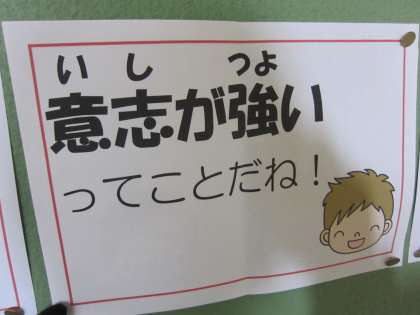 いし つよ
意志が強い
ってことだね！